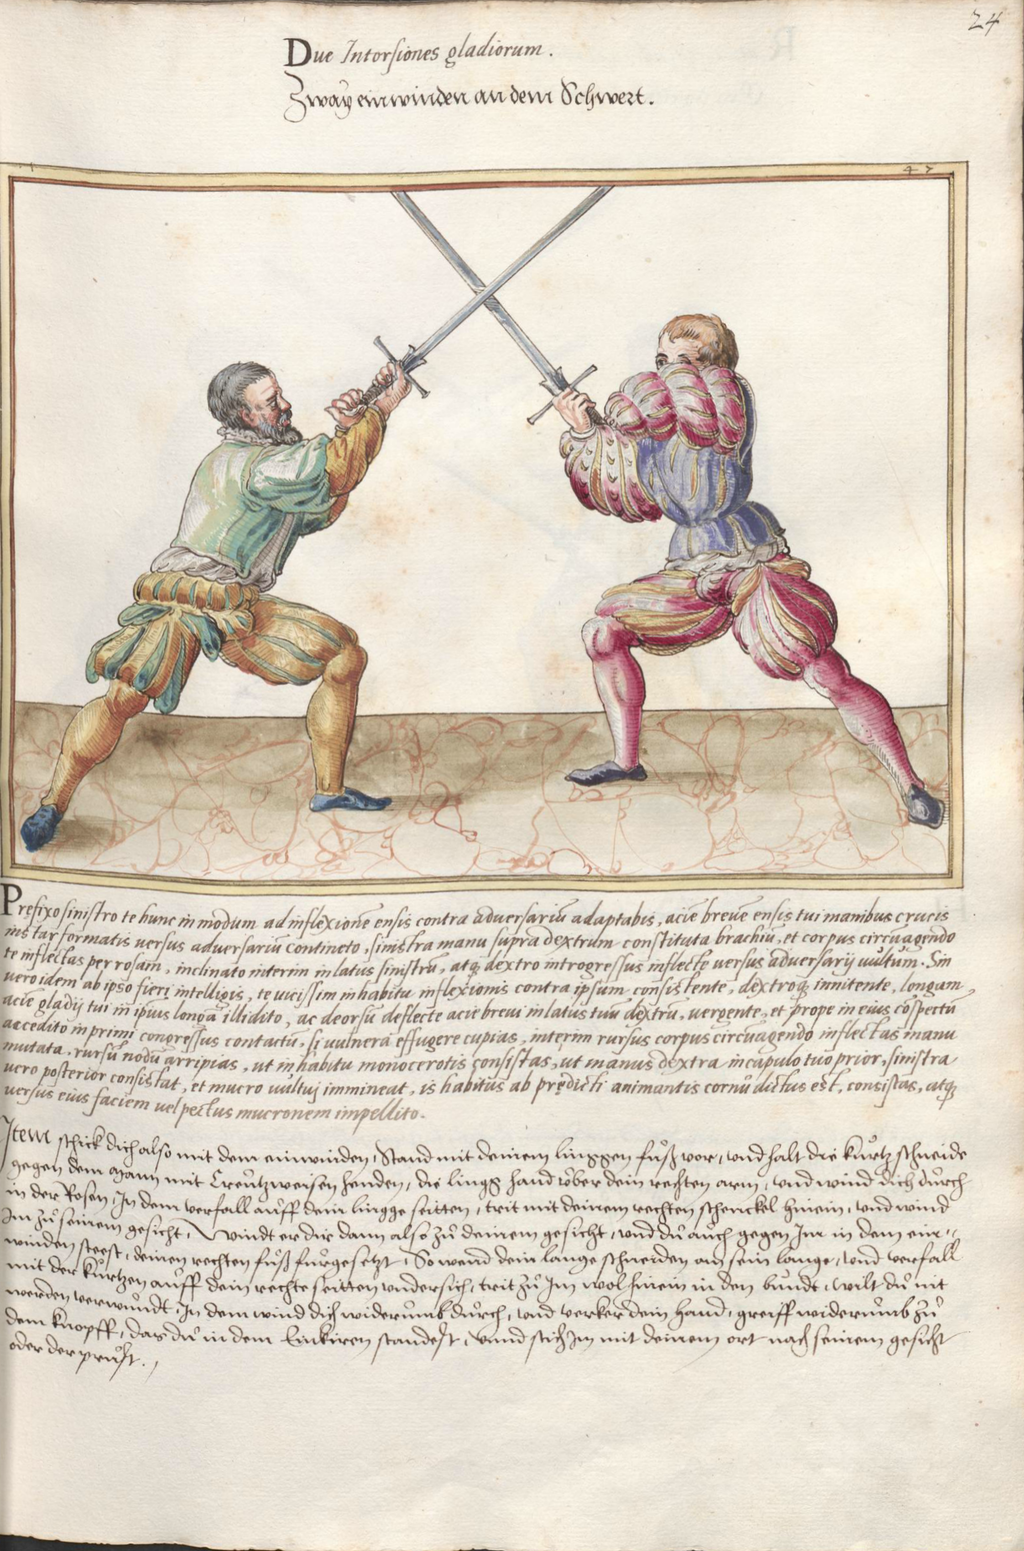 24
Due Intorsiones gladiorum.
Zway einwinden an dem Schwert.
47
Prefixo sinistro te hunc in modum ad inflexionē ensis contra adversariū adaptabis, aciē brevē ensis tui manibus crucis
instar formatis versus adversariū contineto, sinistra manu supra dextrum constituta brachiū, et corpus circūagendo
te inflectas per rosam, inclinato interim in latus sinistrū, atq dextro introgressus inflecte versus adversarij vultum. Sin
vero idem ab ipso fieri intelligis, te vicissim in habitu inflexionis contra ipsum consistente, dextroq innitente, longam
aciē gladij tui in ipius longā illidito, ac deorsū deflecte aciē brevi in latus tuū dextrū, vergente, et prope in eius cōspectū
accedito in primi congressus contactu, si vulnera effugere cupias, interim rursus corpus circūagendo inflectas manu
mutata, rursū nodū arripias, ut in habitu monocerotis consistas, ut manus dextra in capulo tuo prior, sinistra
vero posterior consistat, et mucro vultuj immineat, is habitus ab prędicti animantis cornu dictus est, consistas, atq
versus eius faciem vel pectus mucronem impellito.
Item schick dich also mit dem einwinden, Stand mit deinem linggen fuß vor, und halt die kurtz schneide
gegen dem Mann mit Creutzweisen henden, die lingg hand über dein rechten arm, und wind dich durch
in der Rosen, In dem verfall auff dein lingge seitten, trit mit deinem rechten schenckel hinein, und wind
Im zu seinem gesicht, Windt er dir dann also zu deinem gesicht, und du auch gegen Im in dem ein-
winden steest, deinen rechten fuß furgesetzt, So wend dein lange schneiden an sein lange, und verfall
mit der kurtzen auff dein rechte seitten undersich, trit zu Im wol hinein in den bundt, wilt du nit
werden verwundt, In dem wind dich widerumb durch, und verker dein hand, greiff widerumb zu
dem knopff, das du in dem Einkiren standest, unnd stich Im mit deinem ort nach seinem gesicht
oder der prust.